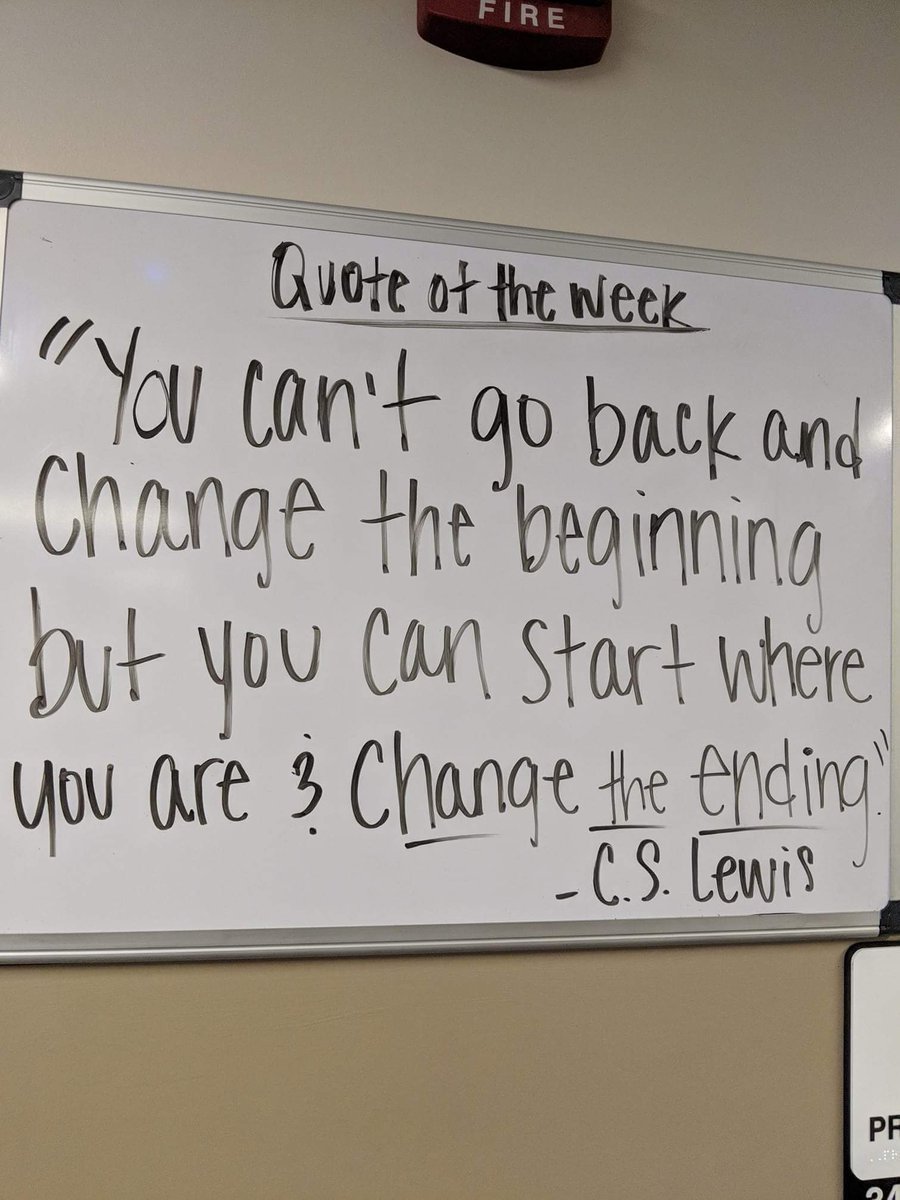 FIRE
Quote of the Week
"You can't go back and
change the beginning
but you can start where
you are & change the ending."
- C.S. Lewis
PR